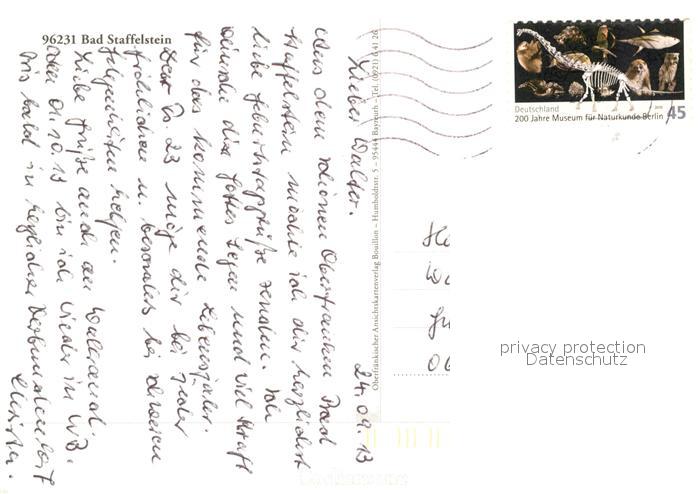 96231 Bad Staffelstein
24.09.13
Lieber Walter.
Aus dem schönen Oberfranken Bad
Staffelstein möchte ich dir herzlichst
liebe Geburtstagsgrüße senden. Ich
wünsche dir Gottes Segen und viel Kraft
für das kommende Lebensjahr.
Der Ps. 23 möge dir bei jeder
fröhlichen u. besonders bei schweren
Gelegenheiten helfen.
Liebe Grüße auch an Waltraud.
Am 01.10.13 bin ich wieder in
Bis bald in herzlicher Verbundenheit
Oberfränkischer Ansichtskartenverlag Bouillon – Humboldtstr. 5 – 95444 Bayreuth – Tel. (0921) 6 41 26
Deutschland
200 Jahre Museum für Naturkunde Berlin 45
He
Wa
Ob
privacy protection
Datenschutz